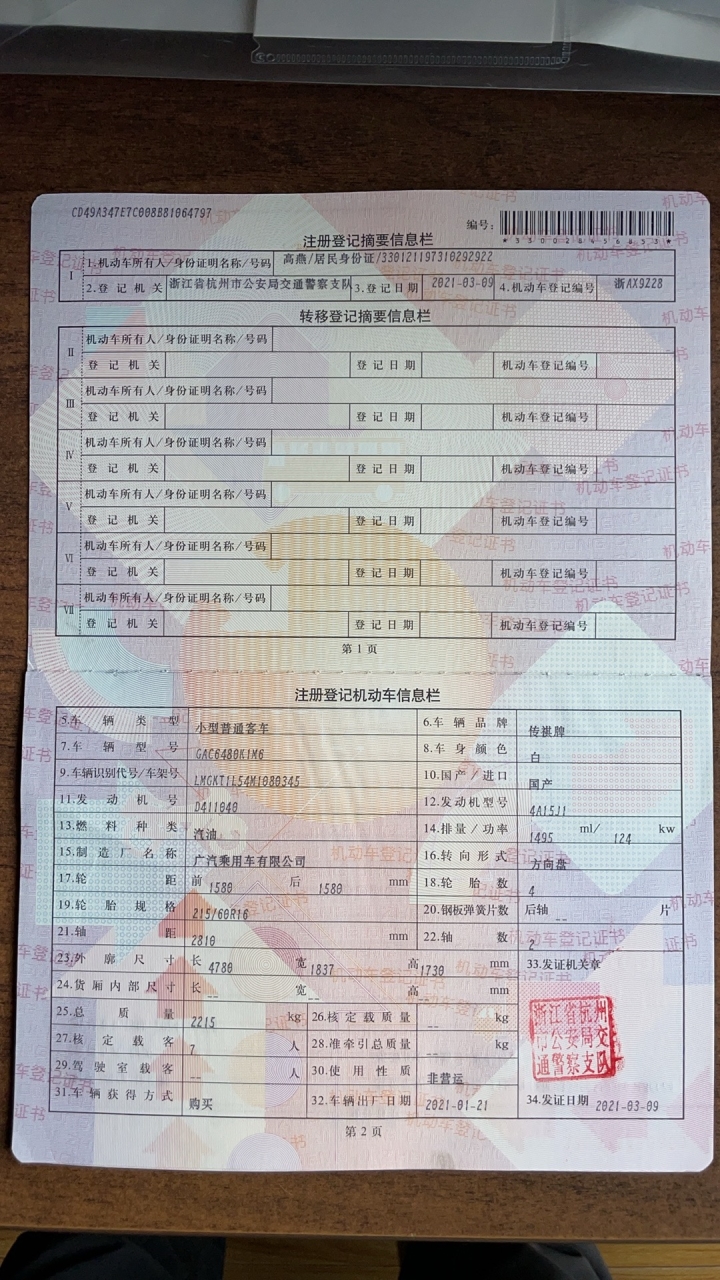 CD49A347E7C008B81064797
编号：
*330028956853*
注册登记摘要信息栏
I
1.机动车所有人/身份证明名称/号码 高燕/居民身份证/330121197310292922
2.登记机关 浙江省杭州市公安局交通警察支队 3.登记日期 2021-03-09 4.机动车登记编号 浙AX9Z28
转移登记摘要信息栏
II
机动车所有人/身份证明名称/号码
登记机关 登记日期 机动车登记编号
III
机动车所有人/身份证明名称/号码
登记机关 登记日期 机动车登记编号
IV
机动车所有人/身份证明名称/号码
登记机关 登记日期 机动车登记编号
V
机动车所有人/身份证明名称/号码
登记机关 登记日期 机动车登记编号
VI
机动车所有人/身份证明名称/号码
登记机关 登记日期 机动车登记编号
VII
机动车所有人/身份证明名称/号码
登记机关 登记日期 机动车登记编号
第1页
注册登记机动车信息栏
5.车辆类型 小型普通客车 6.车辆品牌 传祺牌
7.车辆型号 GAC6480K1M6 8.车身颜色 白
9.车辆识别代号/车架号 LMGKT1L54M1080345 10.国产/进口 国产
11.发动机号 D411040 12.发动机型号 4A15J1
13.燃料种类 汽油 14.排量/功率 1495 ml/ 124 kw
15.制造厂名称 广汽乘用车有限公司 16.转向形式 方向盘
17.轮距 前 1580 后 1580 mm 18.轮胎数 4
19.轮胎规格 215/60R16 20.钢板弹簧片数 后轴 -- 片
21.轴距 2810 mm 22.轴数 2
23.外廓尺寸 长 4780 宽 1837 高 1730 mm 33.发证机关章
24.货厢内部尺寸 长 -- 宽 -- 高 mm
25.总质量 2215 kg 26.核定载质量 -- kg
27.核定载客 7 人 28.准牵引总质量 -- kg
29.驾驶室载客 -- 人 30.使用性质 非营运
31.车辆获得方式 购买 32.车辆出厂日期 2021-01-21 34.发证日期 2021-03-09
浙江省杭州
市公安局交
通警察支队
第2页